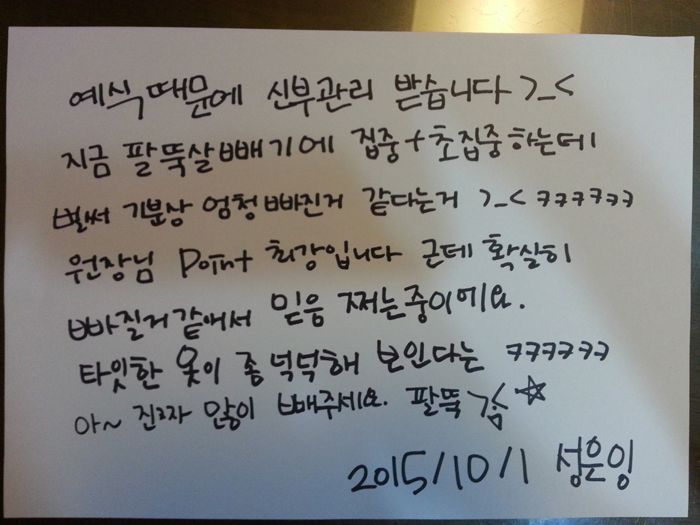 예식때문에 신부관리 받습니다 >_<
지금 팔뚝살빼기에 집중+초집중하는데
벌써 기분상 엄청빠진거 같다는거 >_< ㅋㅋㅋㅋㅋㅋ
원장님 Point 최강입니다 근데 확실히
빠질거같애서 믿음 쩌는중이에요.
타잇한 옷이 좀 넉넉해 보인다는 ㅋㅋㅋㅋㅋㅋ
아~ 진짜 많이 빼주세요. 팔뚝 >_< ☆
2015/10/1 성은잉